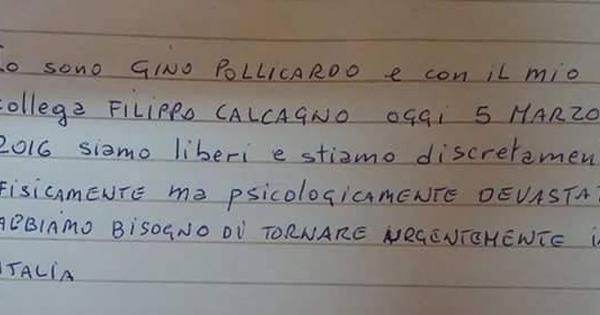 Io sono GINO POLLICARDO e con il mio
collega FILIPPO CALCAGNO oggi 5 MARZO
2016 siamo liberi e stiamo discretamen
FISICAMENTE ma psicologicamente DEVASTAT
ABBIAMO BISOGNO DI TORNARE URGENTEMENTE in
ITALIA